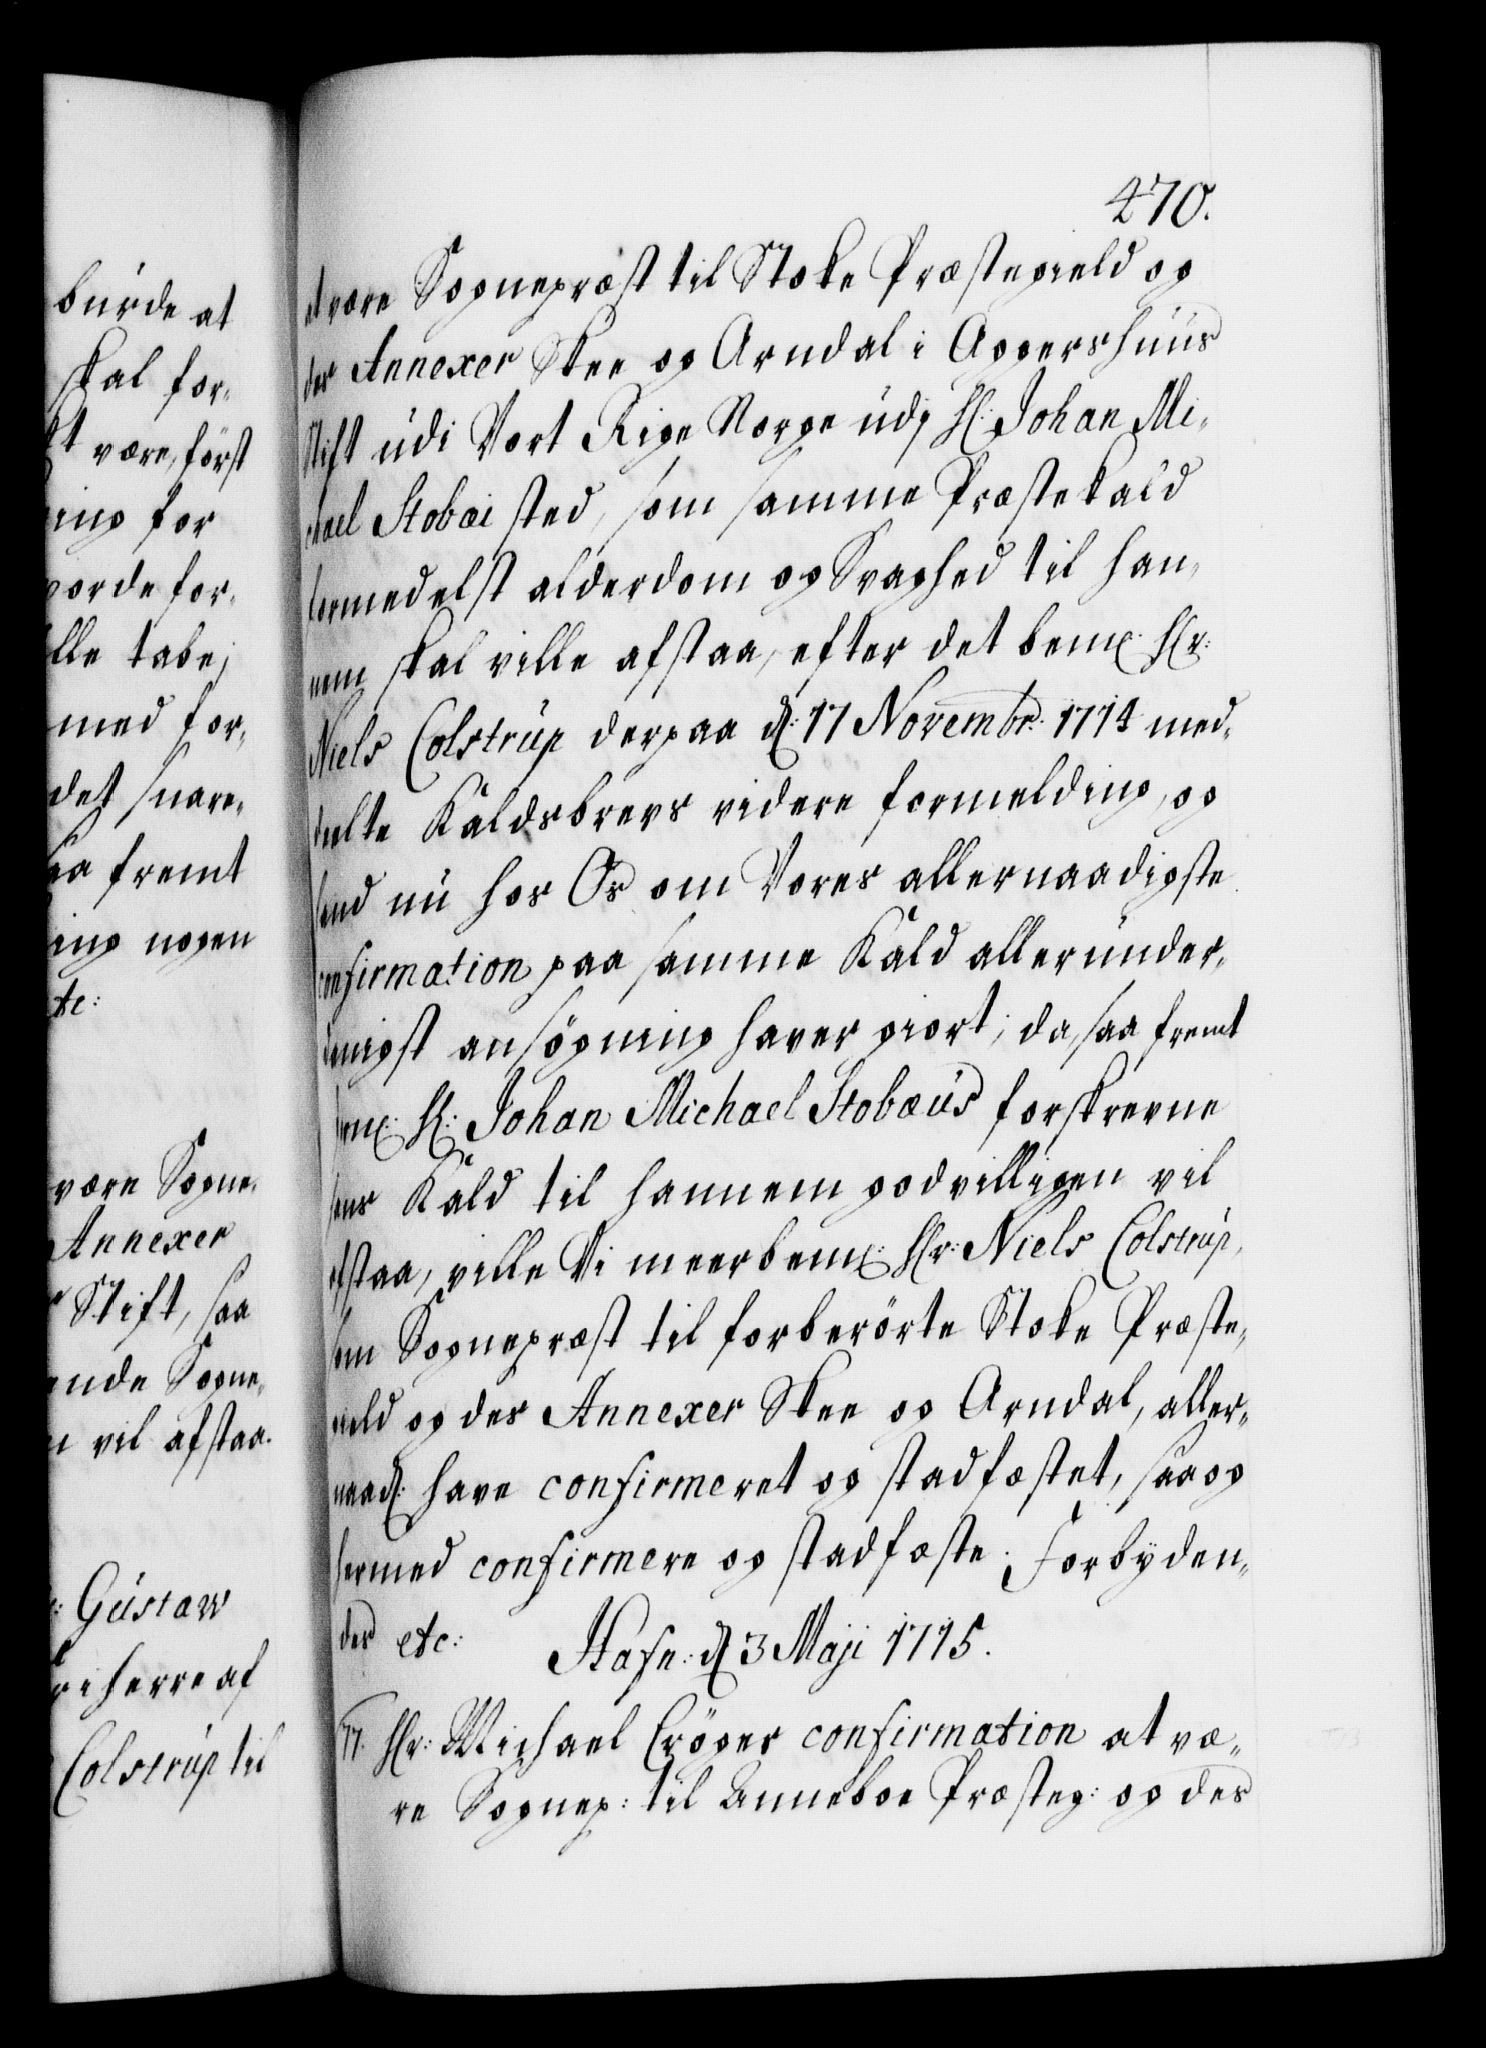 burde at
skal for-
være, först
ing for
vorde for-
lle tabe;
med for-
det snare-
fremt
ing nogen
etc:
være Sogne-
Annexer
Stift, saa
ende Sogne-
vil afstaa.
Gustaw
riherre af
Colstrup til
470.
at være Sognepræst til Stoke Præstegield og
des Annexer Skee og Arndal i Aggershuus
Stift udi Vort Rige Norge udj Hl: Johan Mi-
chael Stobæi sted, som samme Præstekald
formedelst alderdom og Svaghed til han-
nem skal ville afstaa, efter det bemt: Hr:
Niels Colstrup derpaa d: 17 Novembr: 1714 med-
deelte Kaldsbrevs videre formelding, og
hand nu hos Os om Vores allernaadigste
confirmation paa samme Kald allerunder-
danigst ansøgning haver giort; da, saa fremt
bemt: Hl: Johan Michael Stobæus forskrevne
hans Kald til hannem godvilligen vil
afstaa, ville Vi meerbemt: Hr: Niels Colstrup,
som Sognepræst til forberörte Stoke Præste-
gield og des Annexer Skee og Arndal, aller-
naad: have confirmeret og stadfæstet, saa og
hermed confirmere og stadfæste. Forbyden-
des etc: Hafn: d 3 Maji 1715.
77. Hr: Michael Cröger confirmation at væ-
re Sognep: til Anneboe Præsteg: og des